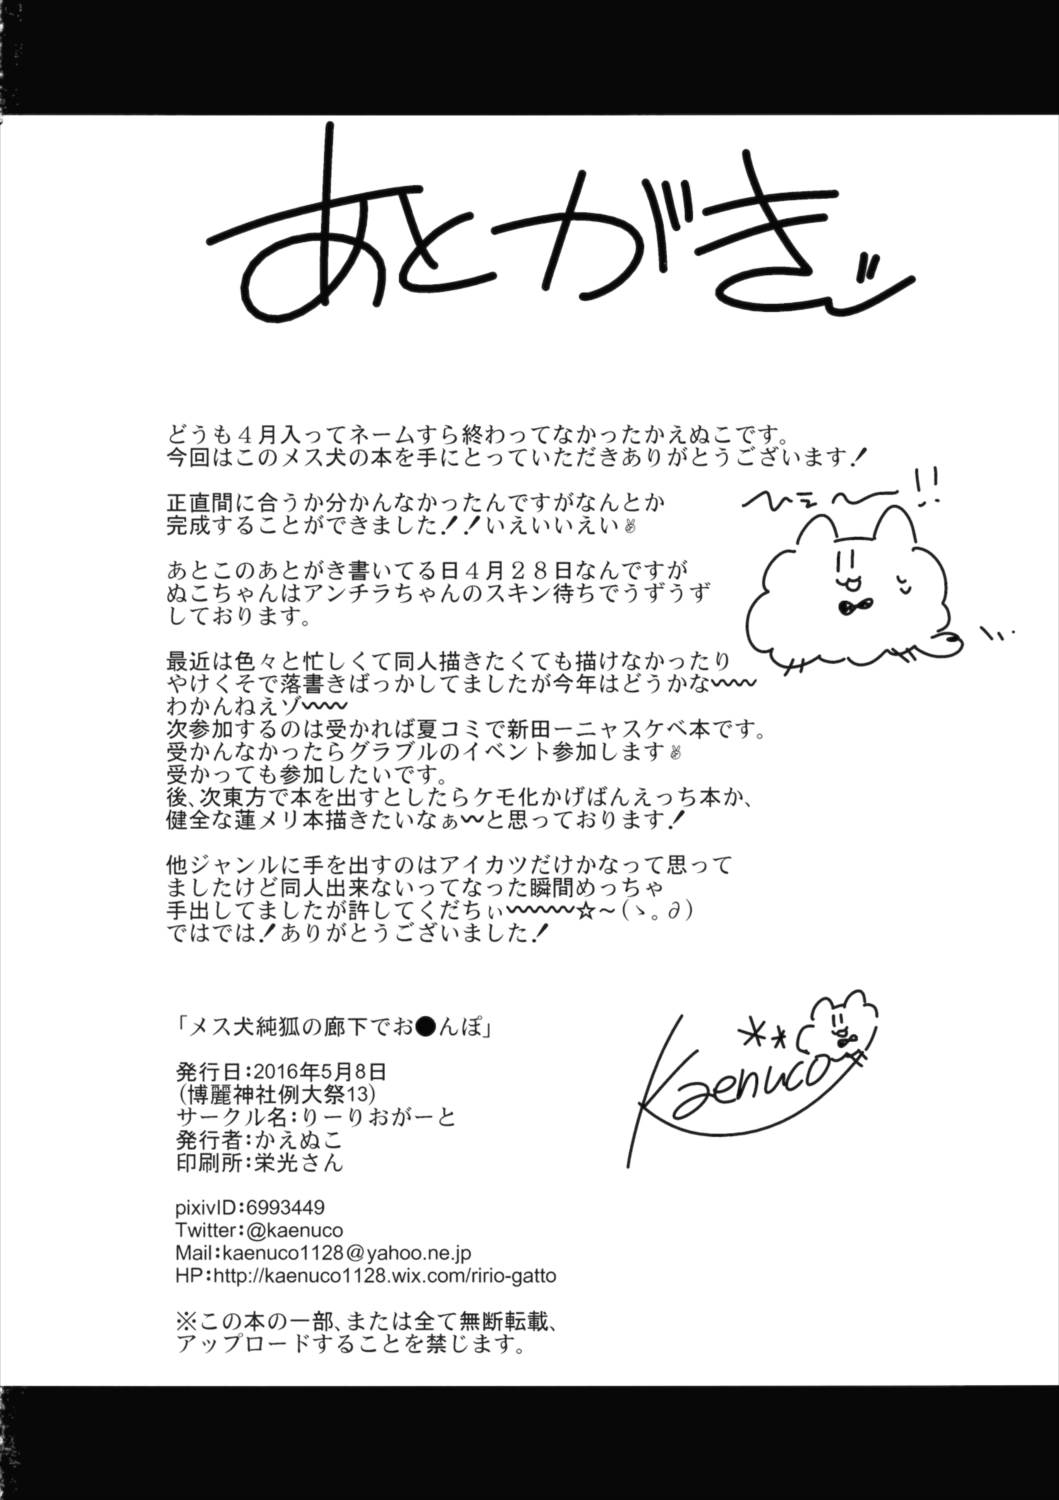 あとがきッ
どうも４月入ってネームすら終わってなかったかえぬこです。
今回はこのメス犬の本を手にとっていただきありがとうございます！
正直間に合うか分かんなかったんですがなんとか
完成することができました！！いえいいえい✌
ひえ〜〜!!
あとこのあとがき書いてる日４月２８日なんですが
ぬこちゃんはアンチラちゃんのスキン待ちでうずうず
しております。
最近は色々と忙しくて同人描きたくても描けなかったり
やけくそで落書きばっかしてましたが今年はどうかな〜〜
わかんねえゾ〜〜
次参加するのは受かれば夏コミで新田ーニャスケベ本です。
受かんなかったらグラブルのイベント参加します✌
受かっても参加したいです。
後、次東方で本を出すとしたらケモ化かげばんえっち本か、
健全な蓮メリ本描きたいなぁ〜と思っております！
他ジャンルに手を出すのはアイカツだけかなって思って
ましたけど同人出来ないってなった瞬間めっちゃ
手出してましたが許してくだちぃ〜〜〜〜☆～(ゝ。∂)
ではでは！ありがとうございました！
「メス犬純狐の廊下でお●んぽ」
Kaenuco
発行日：2016年5月8日
(博麗神社例大祭13)
サークル名：りーりおがーと
発行者：かえぬこ
印刷所：栄光さん
pixivID：6993449
Twitter：@kaenuco
Mail：kaenuco1128@yahoo.ne.jp
HP：http://kaenuco1128.wix.com/ririo-gatto
※この本の一部、または全て無断転載、
アップロードすることを禁じます。